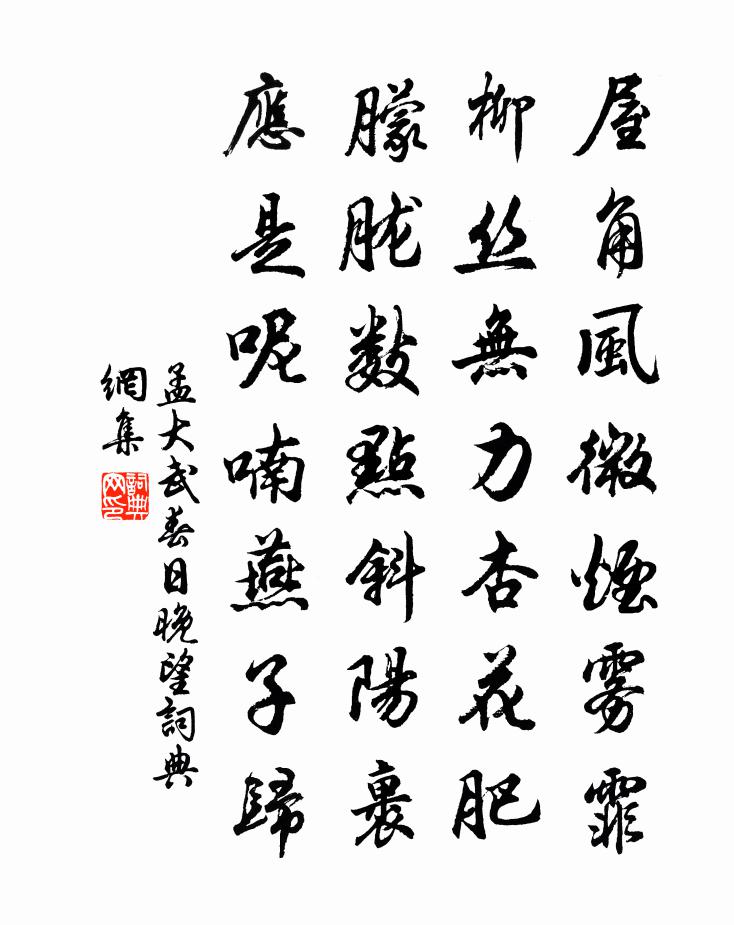 屋角風微煙雾霏
柳丝無力杏花肥
朦胧數點斜陽裹
應是呢喃燕子歸
孟大武春日晚望詞典
網集
詞典
网印